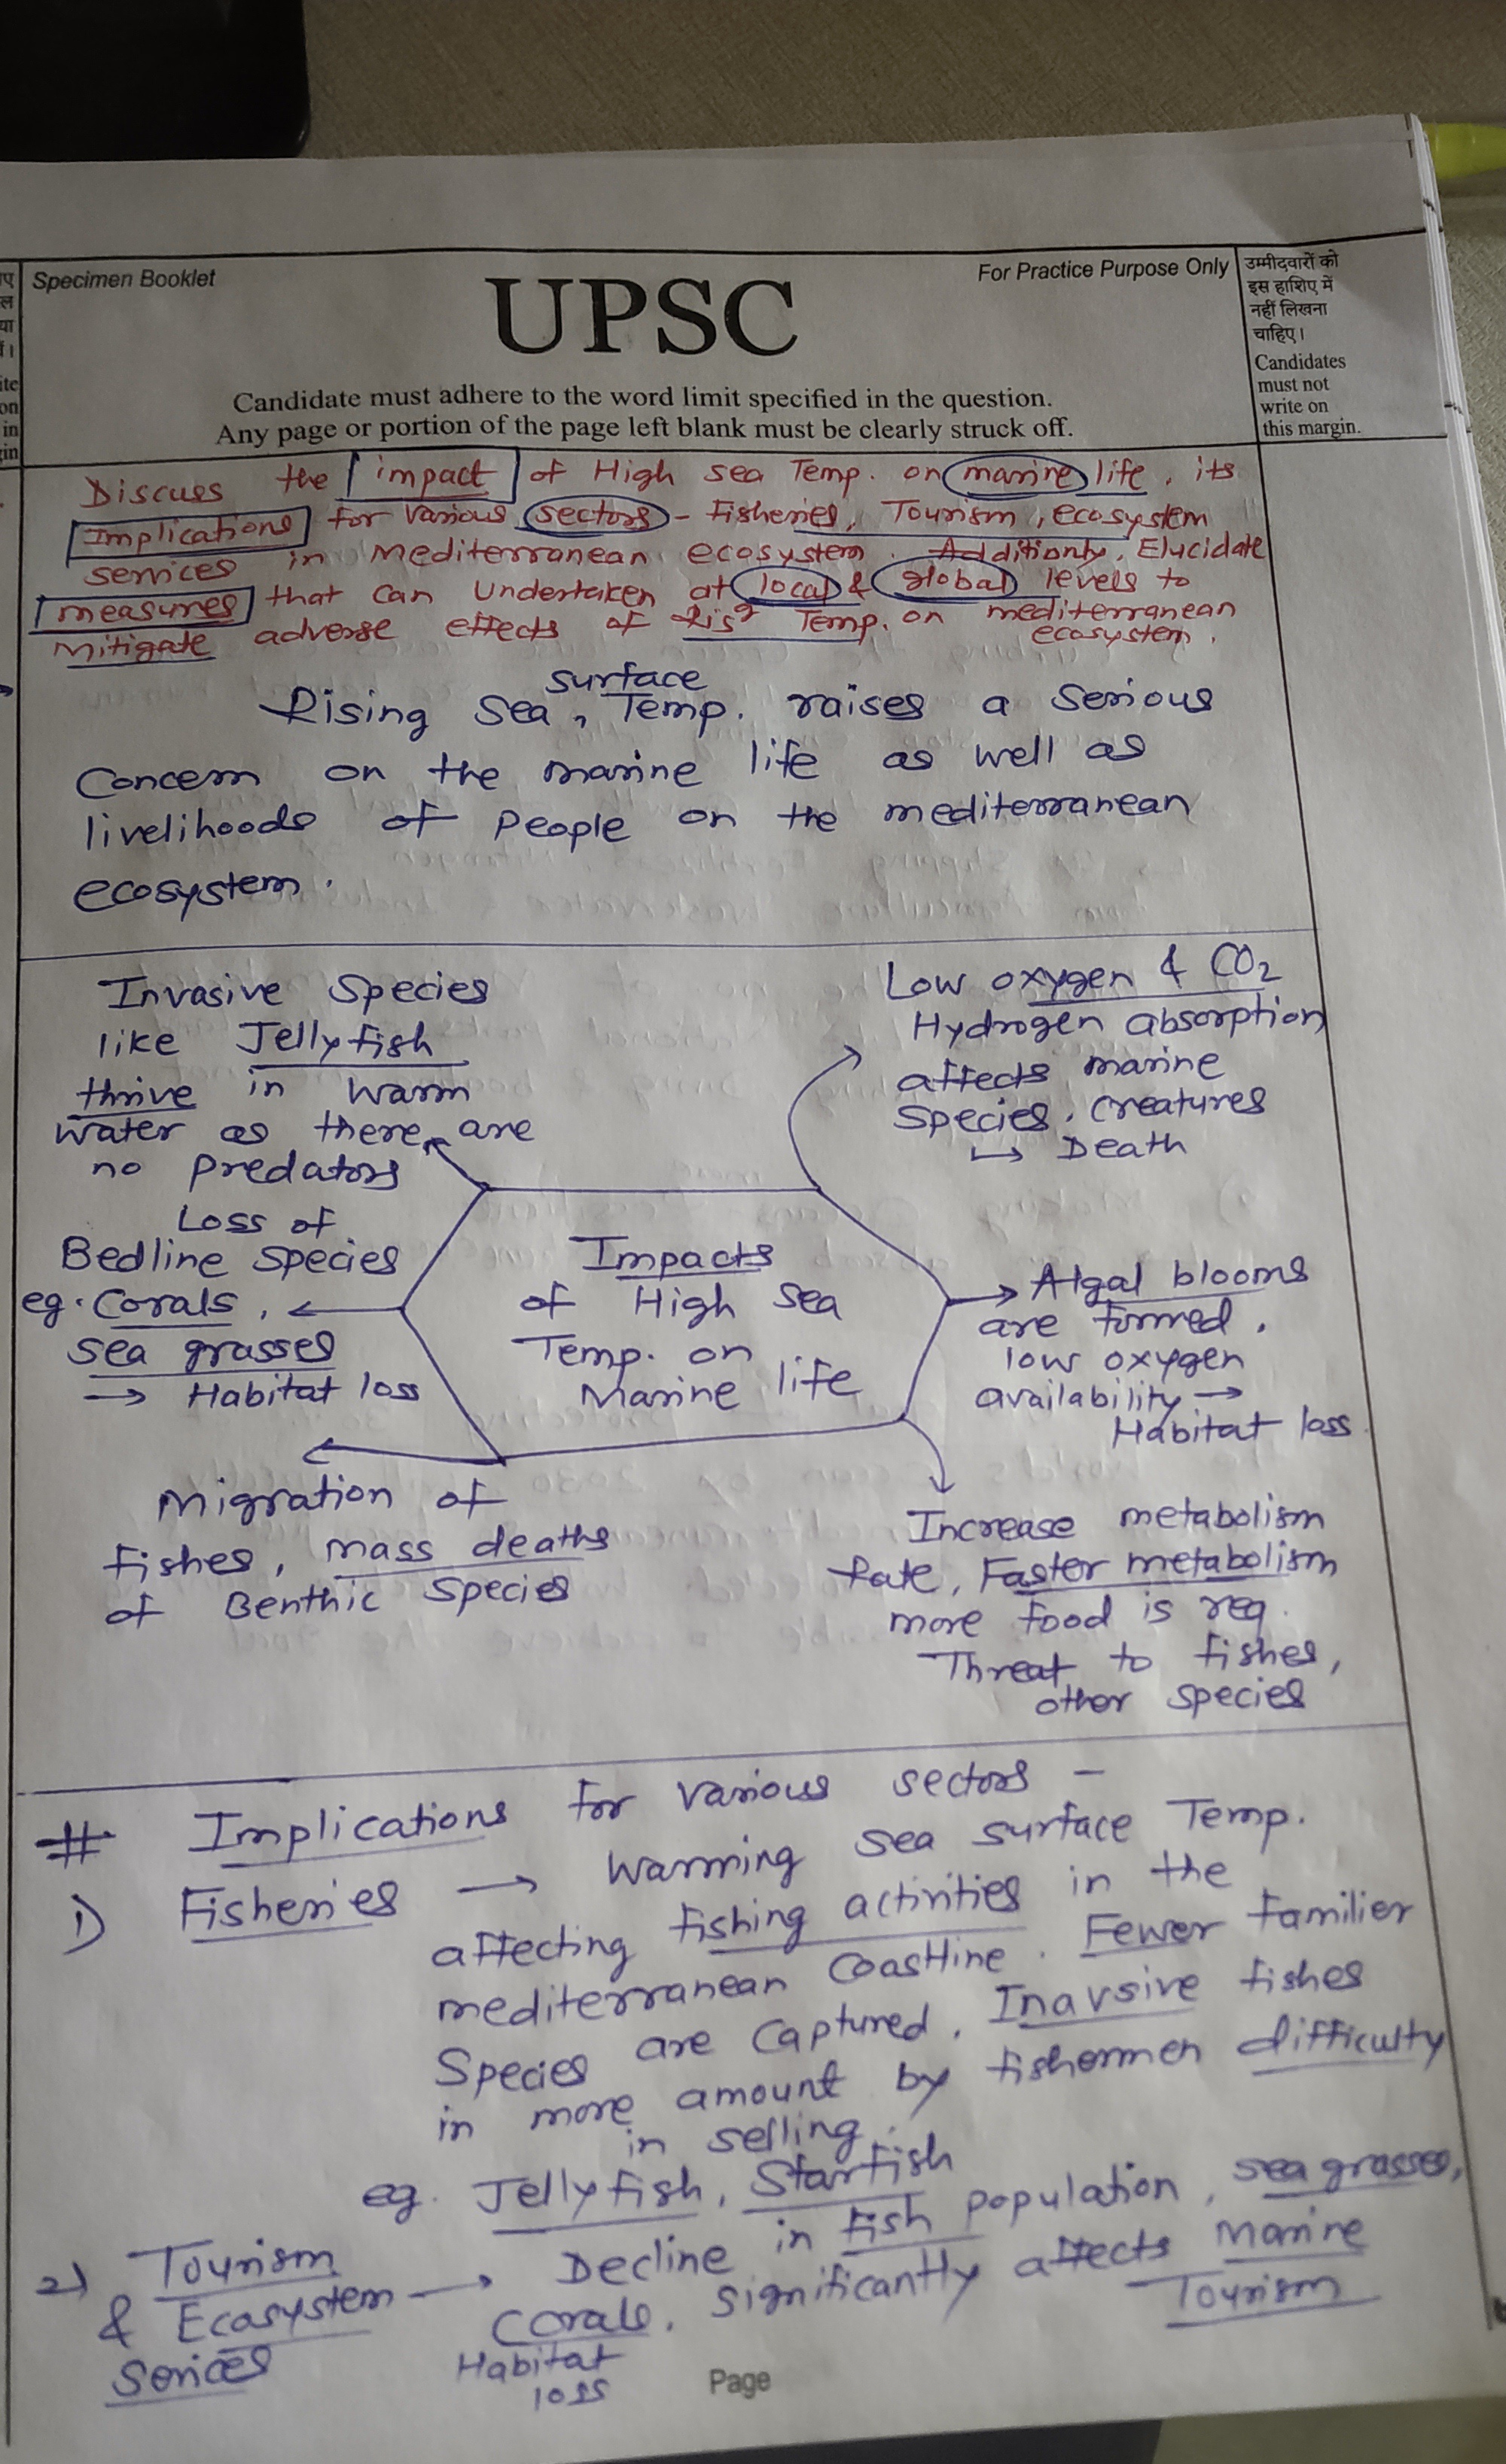 Specimen Booklet
UPSC
For Practice Purpose Only
उम्मीदवारों को
इस हाशिए में
नहीं लिखना
चाहिए।
Candidates
must not
write on
this margin.
Candidate must adhere to the word limit specified in the question.
Any page or portion of the page left blank must be clearly struck off.
Discuss the impact of High sea Temp. on marine life, its
Implications for various sectors - Fisheries, Tourism, ecosystem
services in mediterranean ecosystem. Additionly, Elucidate
measures that can undertaken at local & global levels to
mitigate adverse effects of Temp. on mediterranean
ecosystem.
surface
Rising Sea, Temp. raises a serious
Concern on the marine life as well as
livelihoods of people on the mediterranean
ecosystem.
Invasive Species
like Jellyfish
thrive in warm
water as there are
no predators
Low oxygen & CO2
Hydrogen absorption
affects marine
Species, creatures
↳ Death
Loss of
Bedline species
eg. Corals,
sea grasses
→ Habitat loss
Impacts
of High sea
Temp. on
Marine life
Algal blooms
are formed,
low oxygen
availability →
Habitat loss
Migration of
fishes, mass deaths
of Benthic Species
Increase metabolism
Rate, Faster metabolism
more food is req.
Threat to fishes,
other species
# Implications for various sectors -
1) Fisheries → Warming sea surface Temp.
affecting fishing activities in the
mediterranean coastline. Fewer familier
Species are captured, Inavsive fishes
in more amount by fishermen difficulty
in selling.
eg. Jellyfish, Starfish
2) Tourism
& Ecosystem
Serices
→ Decline in fish population, sea grasses,
corals, significantly affects Marine
Tourism
Habitat
loss
Page